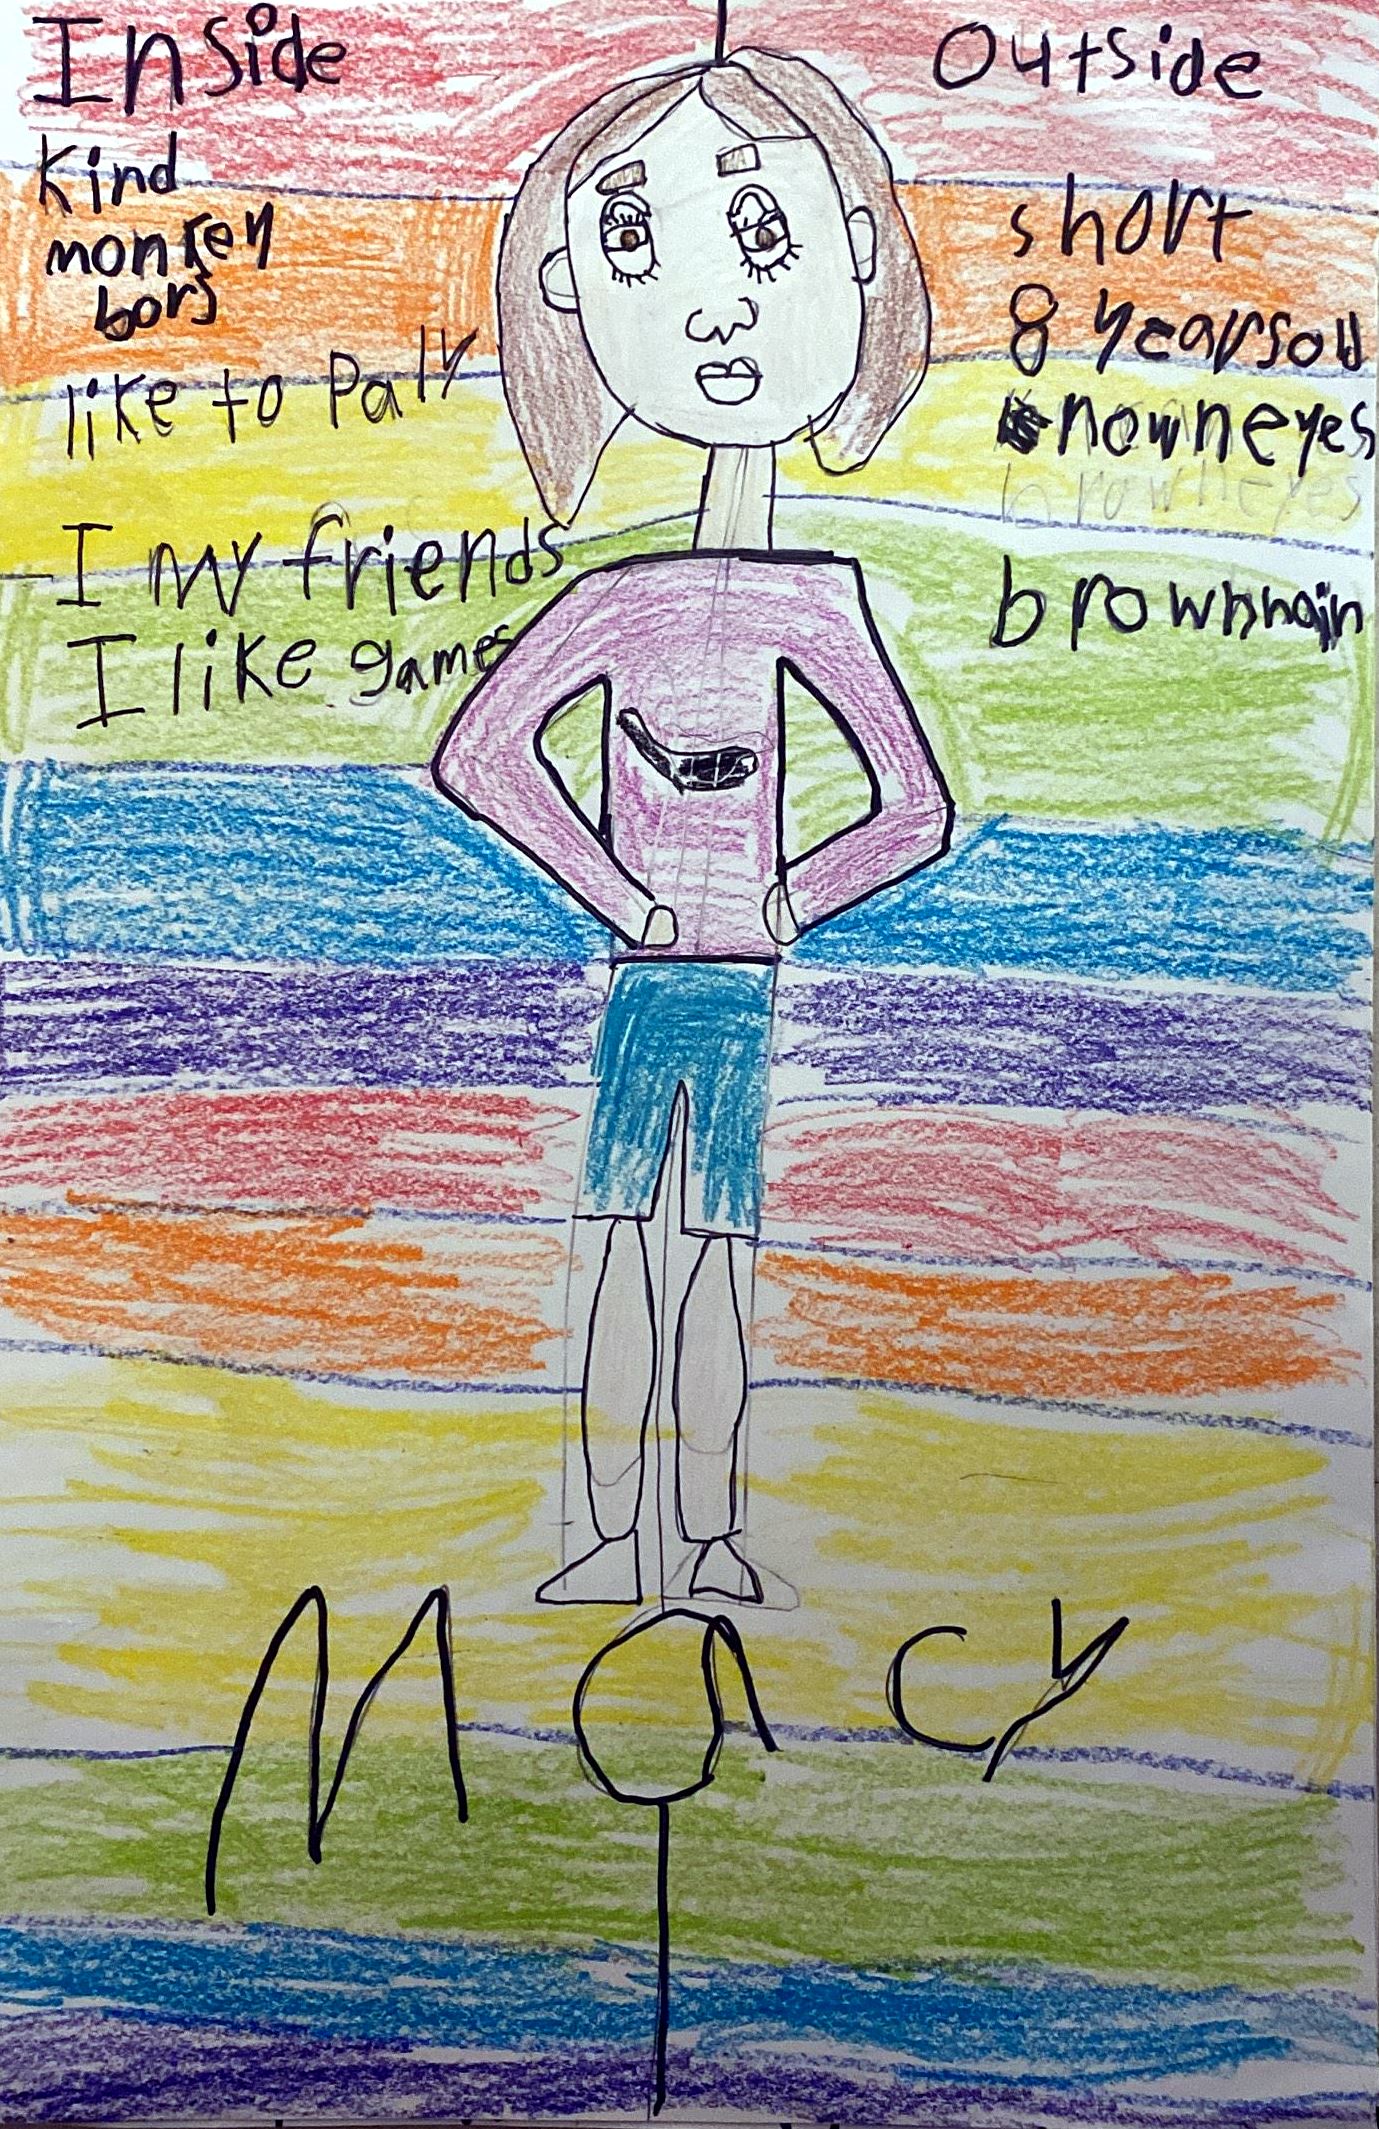 Inside
Kind
monkey
bars
like to Pally
I my friends
I like games
Outside
short
8 years old
browneyes
brownhair
Macy